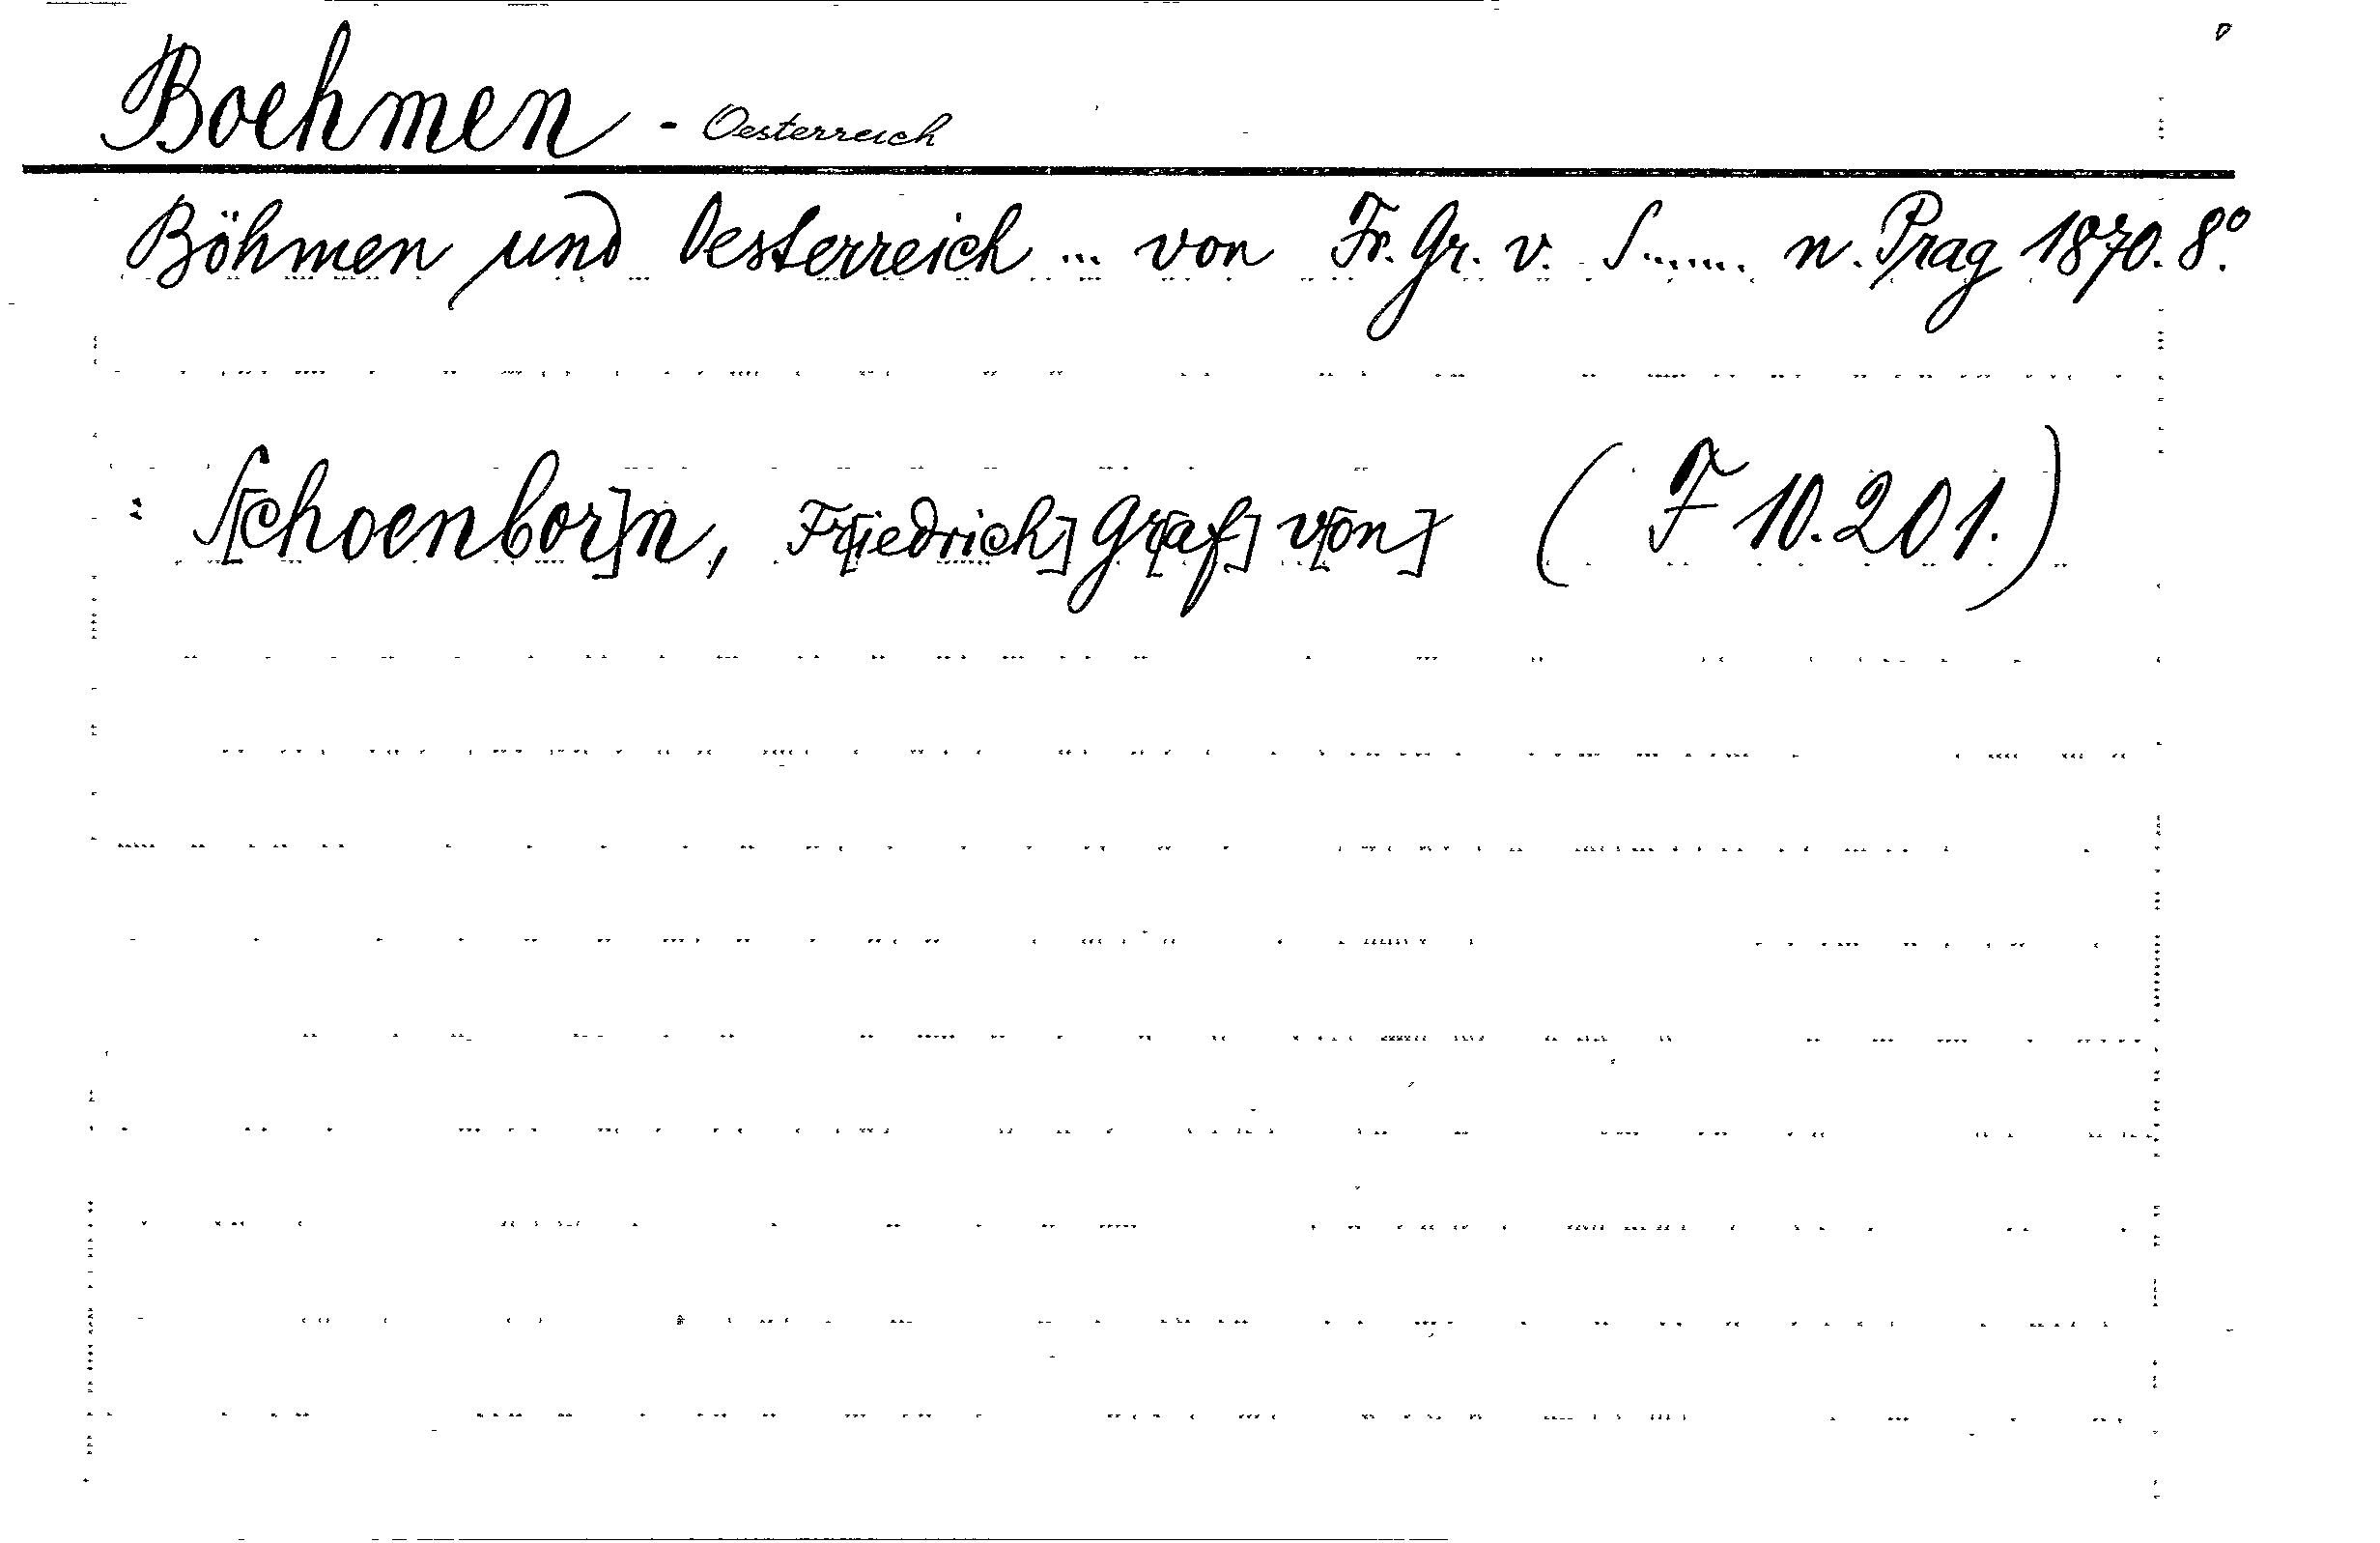 Boehmen - Oesterreich
Böhmen und Oesterreich ... von Fr. Gr. v. S...... n. Prag 1870. 8º.
: S[choenbor]n, Fr[iedrich] Gr[af] v[on] ( F 10.201.)